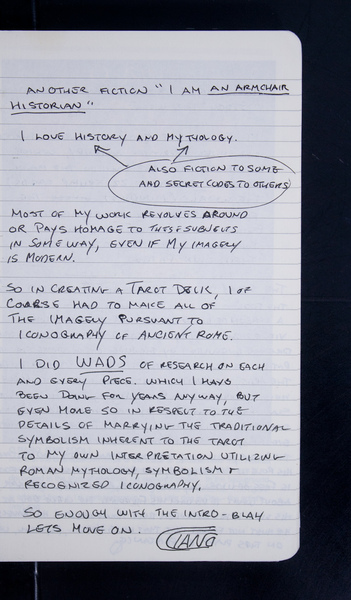 ANOTHER FICTION "I AM AN ARMCHAIR
HISTORIAN"
I LOVE HISTORY AND MYTHOLOGY.
ALSO FICTION TO SOME
AND SECRET CODES TO OTHERS
MOST OF MY WORK REVOLVES AROUND
OR PAYS HOMAGE TO THESE SUBJECTS
IN SOME WAY, EVEN IF MY IMAGERY
IS MODERN.
SO IN CREATING A TAROT DECK, I OF
COURSE HAD TO MAKE ALL OF
THE IMAGERY PURSUANT TO
ICONOGRAPHY OF ANCIENT ROME.
I DID WADS OF RESEARCH ON EACH
AND EVERY PIECE. WHICH I HAVE
BEEN DOING FOR YEARS ANYWAY, BUT
EVEN MORE SO IN RESPECT TO THE
DETAILS OF MARRYING THE TRADITIONAL
SYMBOLISM INHERENT TO THE TAROT
TO MY OWN INTERPRETATION UTILIZING
ROMAN MYTHOLOGY, SYMBOLISM +
RECOGNIZED ICONOGRAPHY.
SO ENOUGH WITH THE INTRO-BLAH
LETS MOVE ON.